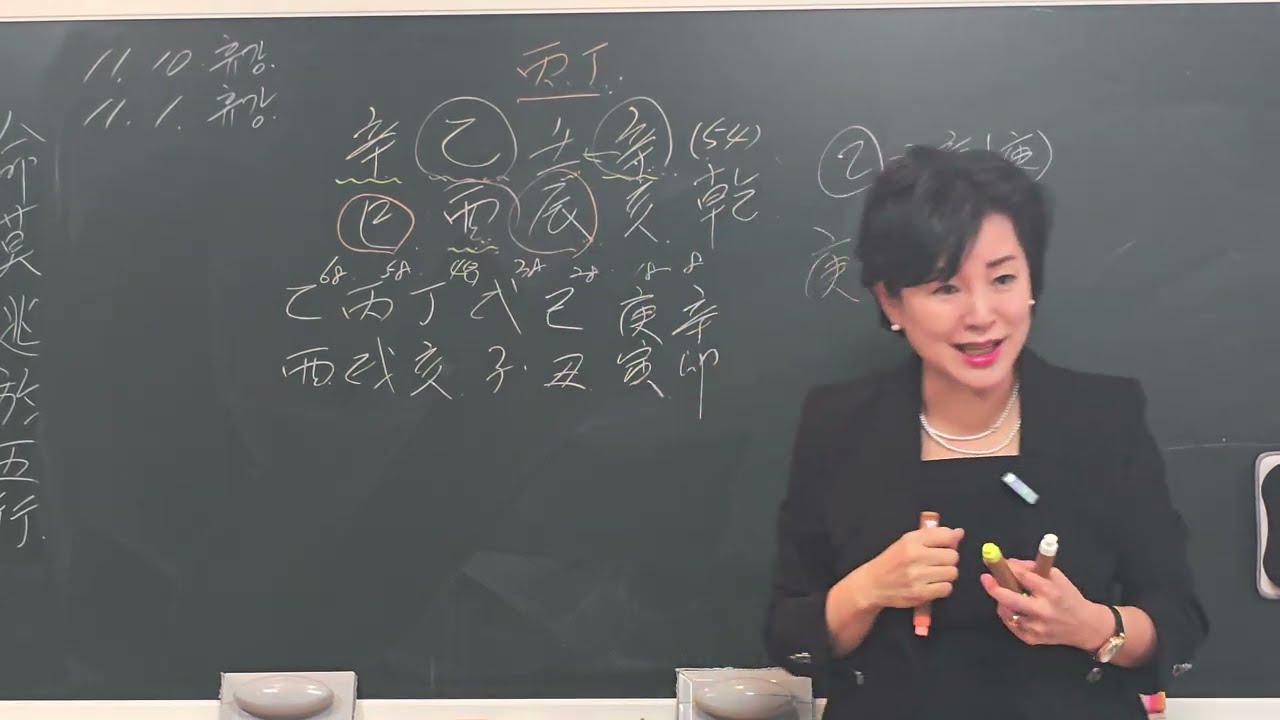 命莫逃於五行.
11. 10. 휴강.
11. 1. 휴강.
丙丁.
辛 乙 壬 辛 (54)
巳 酉 辰 亥 乾
68. 58. 48 38 28 18 8
乙 丙 丁 戊 己 庚 辛
酉 戌 亥 子 丑 寅 卯
乙 辛(庚)
庚